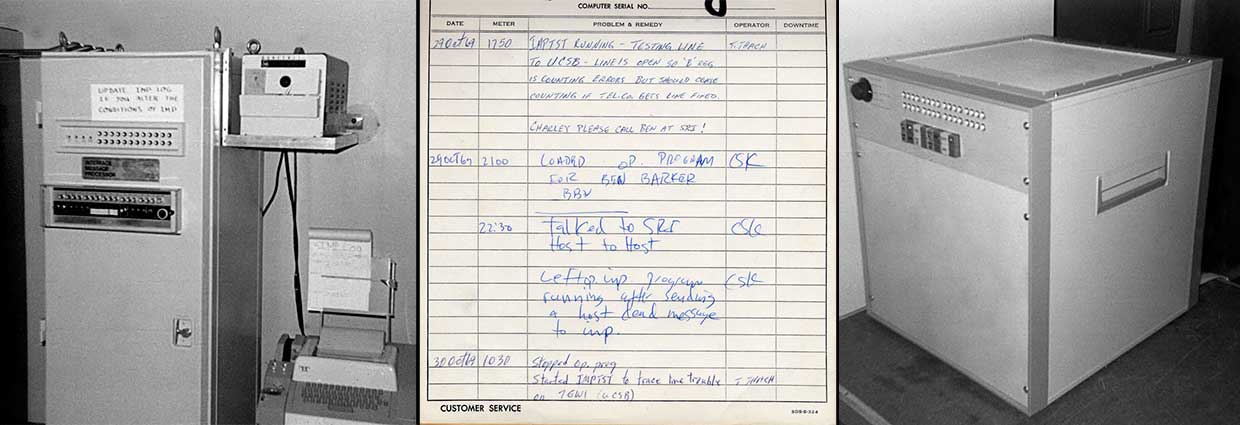 UPDATE IMP LOG
IF YOU ALTER THE
CONDITIONS OF IMP
INTERFACE
MESSAGE
PROCESSOR
IMP LOG
COMPUTER SERIAL NO.
DATE METER PROBLEM & REMEDY OPERATOR DOWNTIME
29 Oct 69 1750 IMPTST RUNNING - TESTING LINE T. THACH
TO UCSB - LINE IS OPEN SO 'B' REG
IS COUNTING ERRORS BUT SHOULD CEASE
COUNTING IF TEL.CO. GETS LINE FIXED.
CHARLEY PLEASE CALL BEN AT SRI!
29 OCT 69 2100 LOADED OP. PROGRAM CSK
FOR BEN BARKER
BBN
22:30 Talked to SRI CSK
Host to Host
Left op. imp program CSK
running after sending
a host dead message
to imp.
30 Oct 69 1030 Stopped op. prog
Started IMPTST to trace line trouble T. THACH
on (UCSB)
CUSTOMER SERVICE